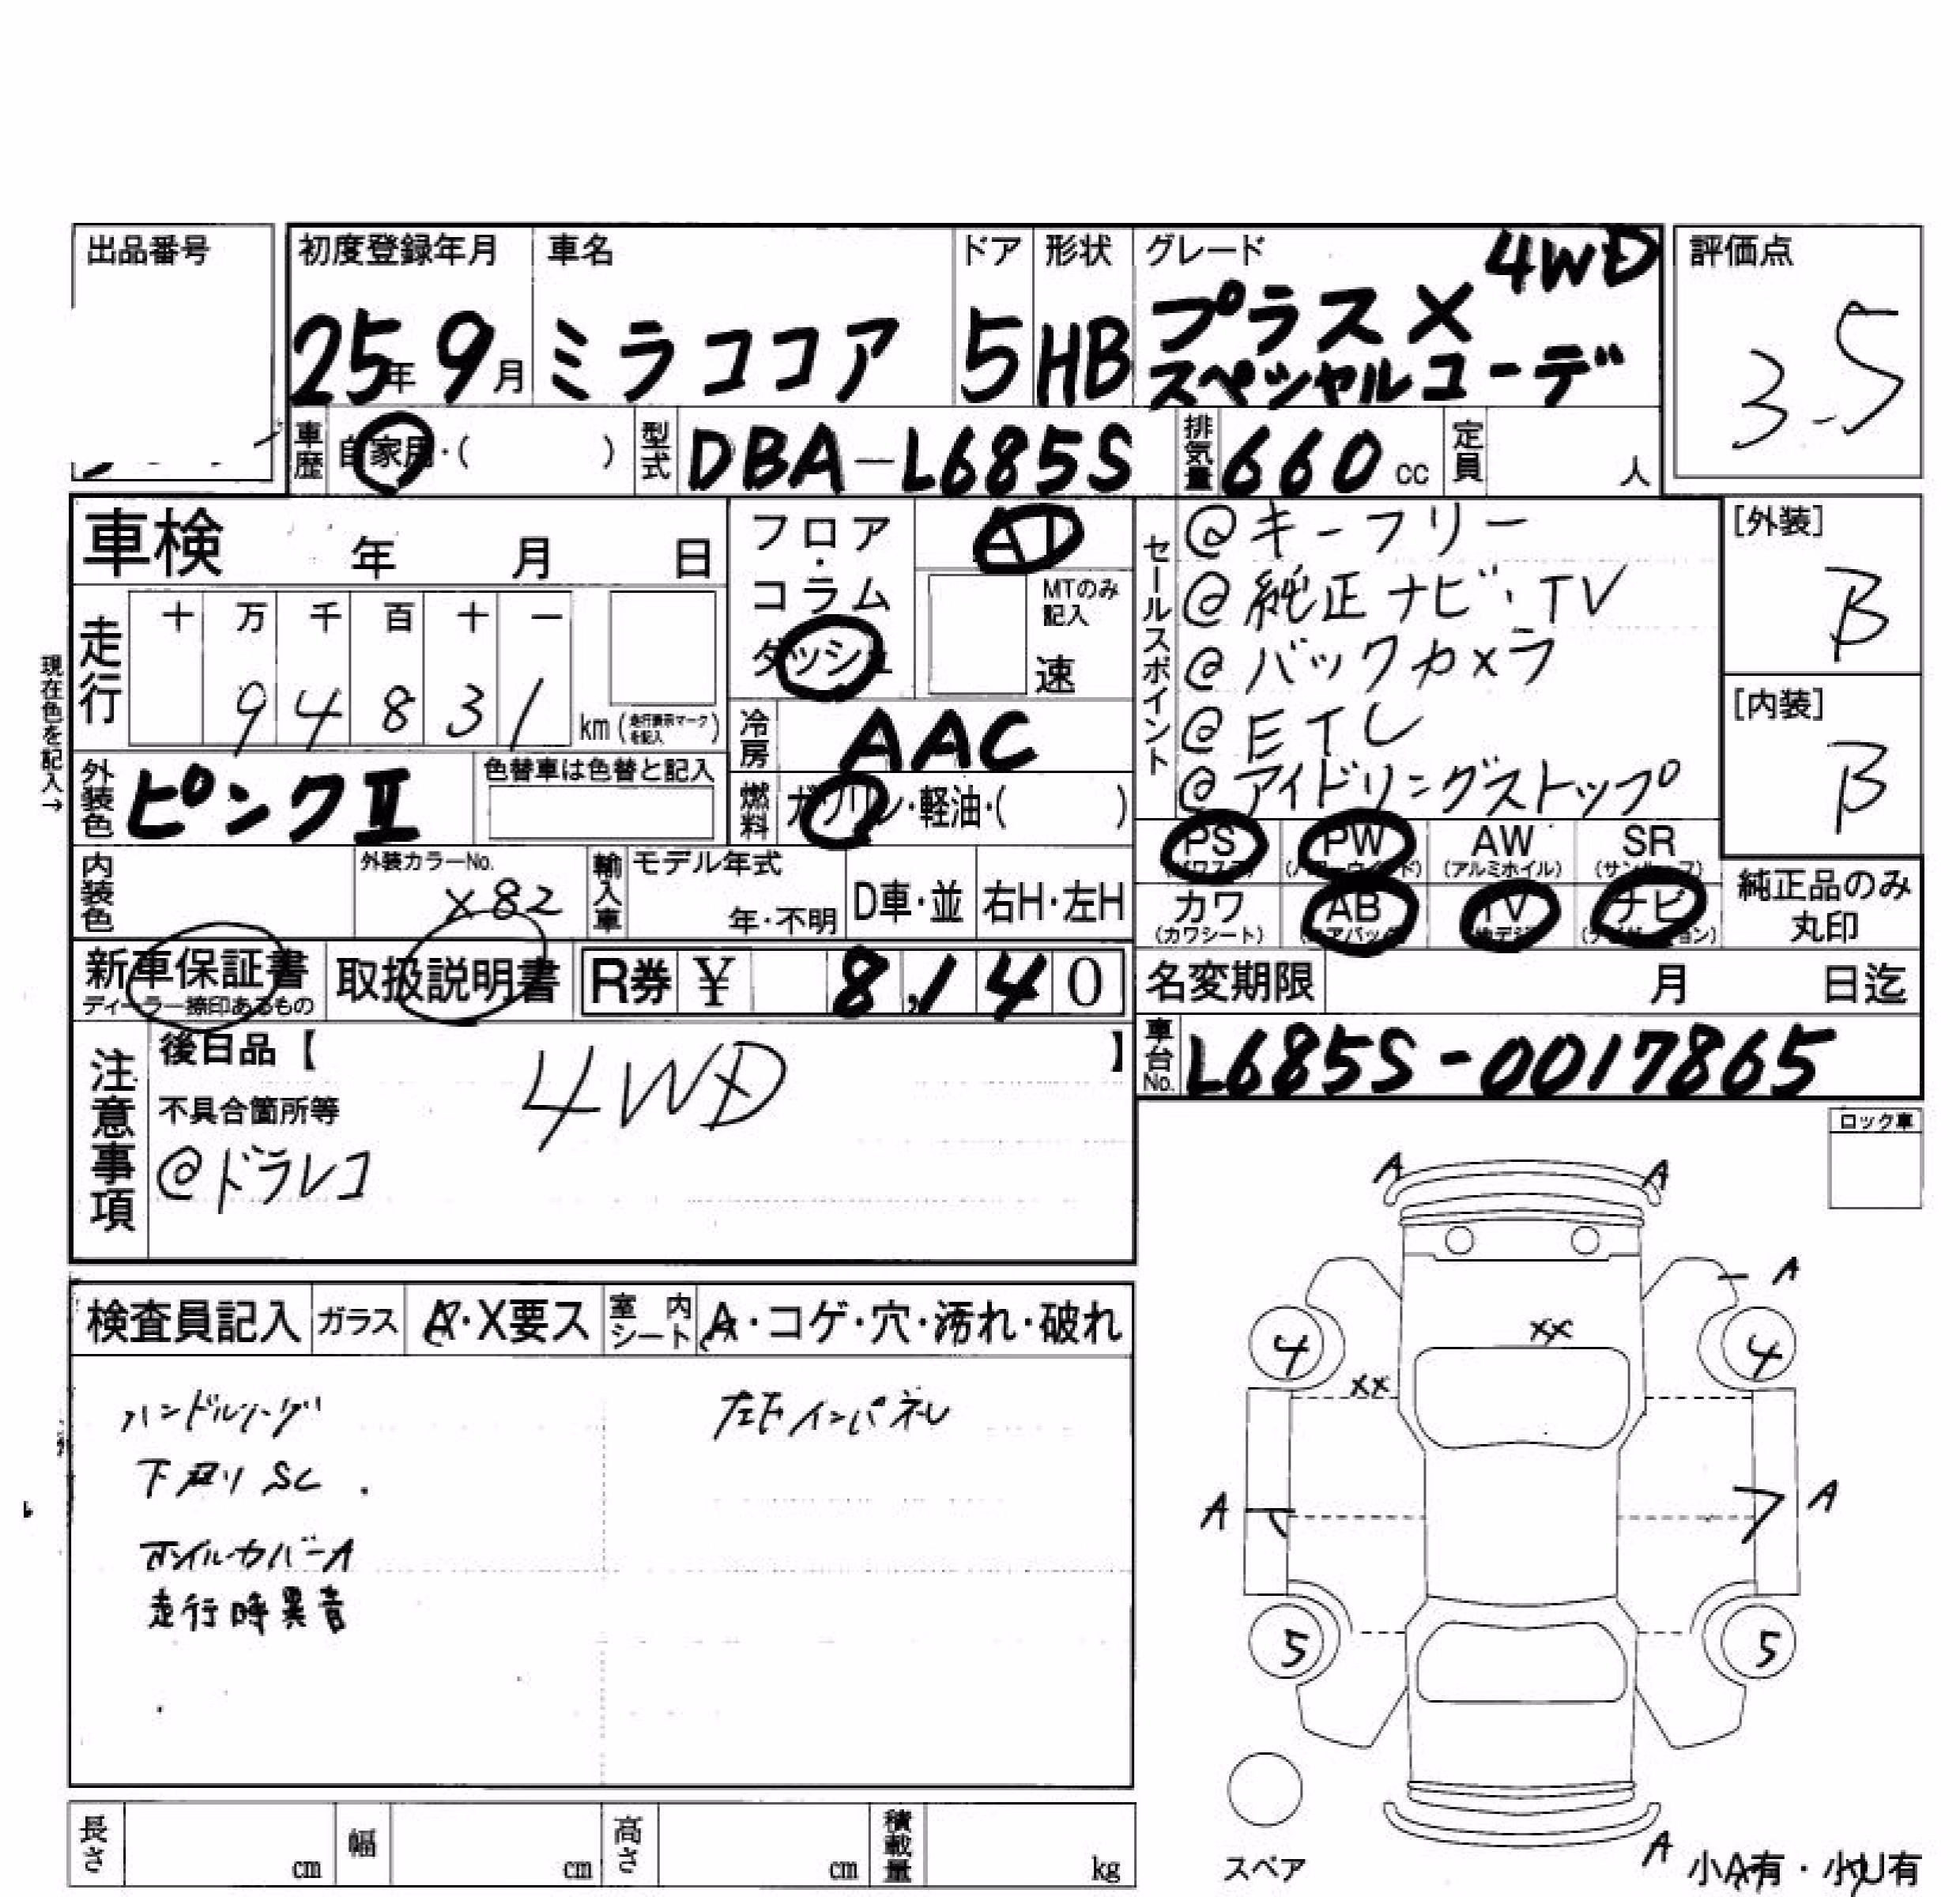 出品番号
初度登録年月 車名 ドア 形状 グレード 4WD 評価点
25年9月 ミラココア 5 HB プラスX
スペシャルコーデ
3.5
車歴 自家用・( ) 型式 DBA-L685S 排気量 660 cc 定員 人
車検 年 月 日
フロア・コラム
ダッシュ
AT
MTのみ記入
速
セールスポイント
@キーフリー
@純正ナビ・TV
@バックカメラ
@ETC
@アイドリングストップ
[外装]
B
[内装]
B
現在色を記入→
走行 十 万 千 百 十 一
9 4 8 3 1 km (走行表示マークを記入)
冷房 AAC
外装色 ピンクII 色替車は色替と記入
燃料 ガソリン・軽油・( )
PS PW AW SR
(パワステ) (パワーウインド) (アルミホイル) (サンルーフ)
カワ AB TV ナビ
(カワシート) (エアバッグ) (地デジ) (ナビゲーション)
純正品のみ
丸印
内装色 外装カラーNo.
X82
輸入車 モデル年式
年・不明 D車・並 右H・左H
新車保証書
ディーラー捺印あるもの
取扱説明書 R券 ¥ 8,140
名変期限 月 日迄
車台No. L685S-0017865
注意事項
後日品【 】
4WD
不具合箇所等
@ドラレコ
ロック車
検査員記入 ガラス A・X要ス 室内シート A・コゲ・穴・汚れ・破れ
下廻りSC
ホイルカバーA
走行時異音
A A
A
XX
4 4
XX
A A
5 5
スペア
A 小A有・小U有
長さ cm 幅 cm 高さ cm 積載量 kg